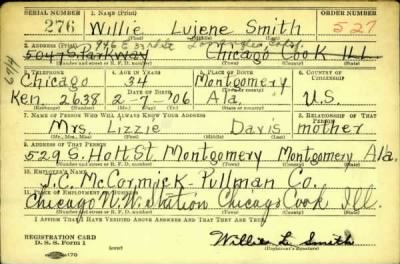 SERIAL NUMBER 1. NAME (Print) ORDER NUMBER
276 Willie Lujene Smith 527
(First) (Middle) (Last)
2. ADDRESS (Print)
5047 S. Parkway Chicago Cook ILL
(Number and street or R. F. D. number) (Town) (County) (State)
3. TELEPHONE 4. AGE IN YEARS 5. PLACE OF BIRTH 6. COUNTRY OF CITIZENSHIP
Chicago 34 Montgomery
DATE OF BIRTH
Ken. 2638 2-7-06 Ala. U.S.
(Exchange) (Number) (Mo.) (Day) (Yr.) (State or country)
7. NAME OF PERSON WHO WILL ALWAYS KNOW YOUR ADDRESS 8. RELATIONSHIP OF THAT PERSON
Mrs. Lizzie Davis mother
(Mr., Mrs., Miss) (First) (Middle) (Last)
9. ADDRESS OF THAT PERSON
529 S. Holt St. Montgomery Montgomery Ala.
(Number and street or R. F. D. number) (Town) (County) (State)
10. EMPLOYER'S NAME
J.C. McCormick-Pullman Co.
11. PLACE OF EMPLOYMENT OR BUSINESS
Chicago N.W. Station Chicago Cook Ill.
(Number and street or R. F. D. number) (Town) (County) (State)
I AFFIRM THAT I HAVE VERIFIED ABOVE ANSWERS AND THAT THEY ARE TRUE.
REGISTRATION CARD
D. S. S. Form 1
Willie L. Smith
(Registrant's signature)